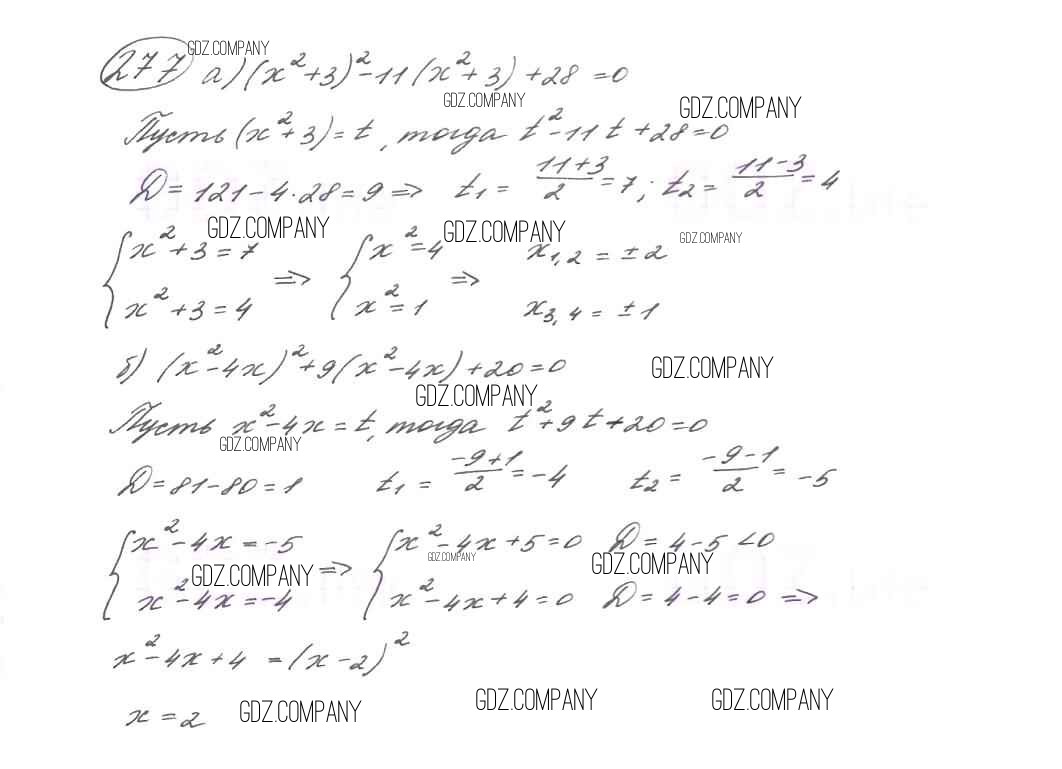 GDZ.COMPANY
277 а) (x²+3)²-11(x²+3)+28=0
GDZ.COMPANY GDZ.COMPANY
Пусть (x²+3)=t, тогда t²-11t+28=0
D=121-4·28=9 => t₁ = (11+3)/2 =7; t₂ = (11-3)/2 = 4
GDZ.COMPANY GDZ.COMPANY GDZ.COMPANY
{ x²+3=7 => { x²=4 => x₁,₂ = ±2
x²+3=4 x²=1 x₃,₄ = ±1
б) (x²-4x)²+9(x²-4x)+20=0 GDZ.COMPANY
GDZ.COMPANY
Пусть x²-4x=t, тогда t²+9t+20=0
GDZ.COMPANY
D=81-80=1 t₁ = (-9+1)/2 = -4 t₂ = (-9-1)/2 = -5
{ x²-4x=-5 => { x²-4x+5=0 D=4-5<0
GDZ.COMPANY GDZ.COMPANY GDZ.COMPANY
x²-4x=-4 x²-4x+4=0 D=4-4=0 =>
x²-4x+4 =(x-2)²
x=2 GDZ.COMPANY GDZ.COMPANY GDZ.COMPANY